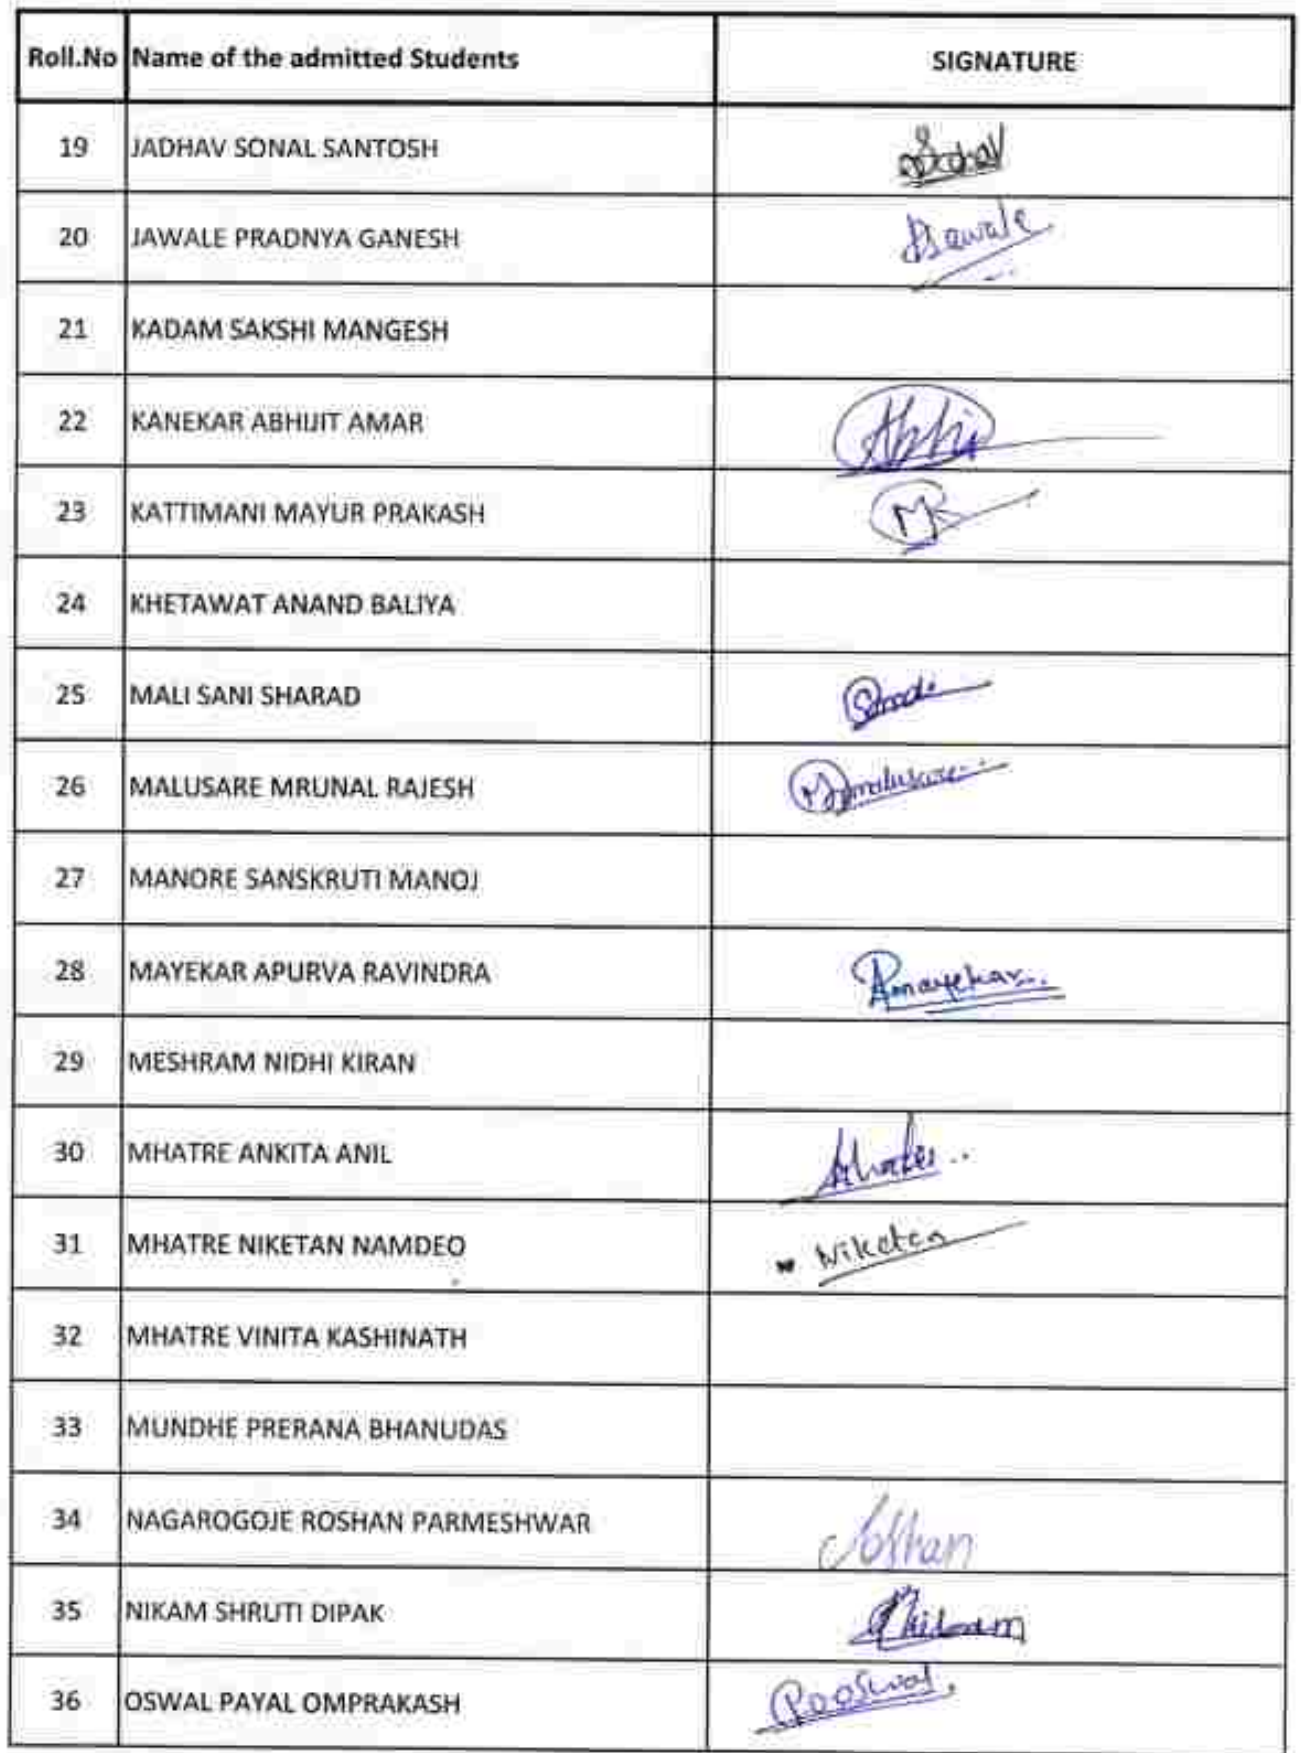 Roll.No Name of the admitted Students SIGNATURE
19 JADHAV SONAL SANTOSH
20 JAWALE PRADNYA GANESH Jawale
21 KADAM SAKSHI MANGESH
22 KANEKAR ABHIJIT AMAR Abhi
23 KATTIMANI MAYUR PRAKASH MK
24 KHETAWAT ANAND BALIYA
25 MALI SANI SHARAD
26 MALUSARE MRUNAL RAJESH Mmalusare
27 MANORE SANSKRUTI MANOJ
28 MAYEKAR APURVA RAVINDRA Amayekar
29 MESHRAM NIDHI KIRAN
30 MHATRE ANKITA ANIL
31 MHATRE NIKETAN NAMDEO Niketan
32 MHATRE VINITA KASHINATH
33 MUNDHE PRERANA BHANUDAS
34 NAGAROGOJE ROSHAN PARMESHWAR Roshan
35 NIKAM SHRUTI DIPAK
36 OSWAL PAYAL OMPRAKASH Pooswal